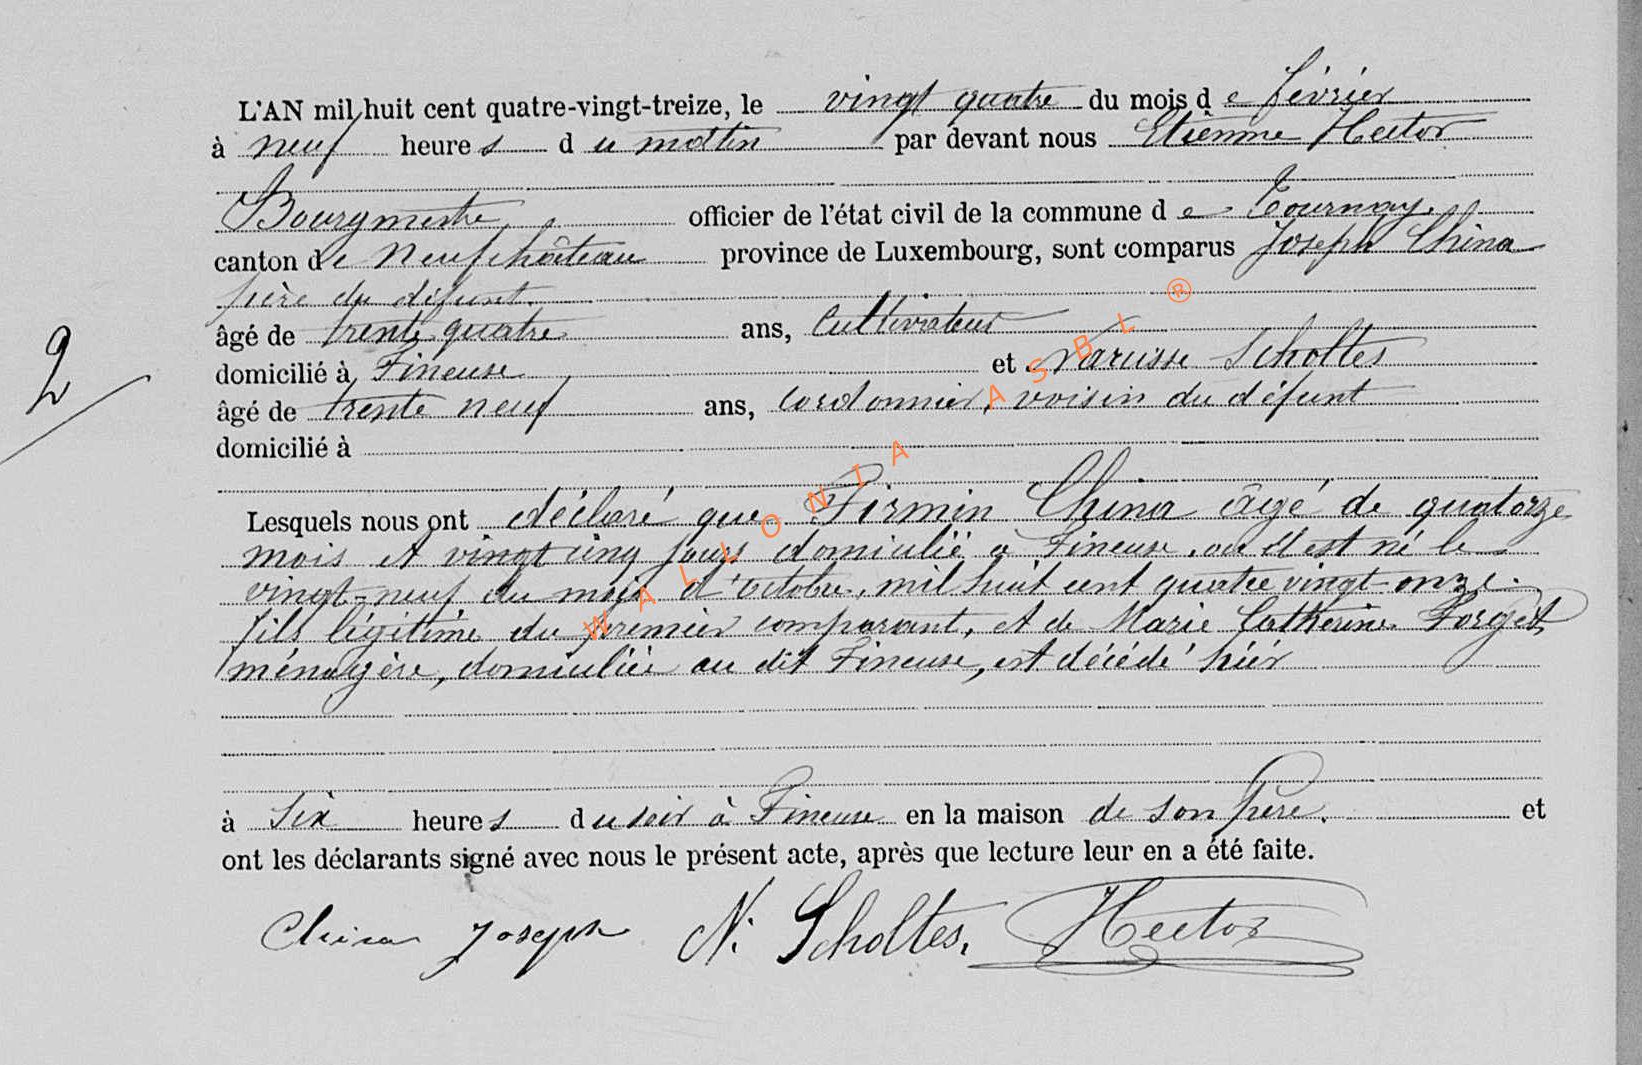 L'AN mil huit cent quatre-vingt-treize, le vingt quatre du mois de février
à neuf heures du matin par devant nous Etienne Hector
Bourgmestre officier de l'état civil de la commune de Tournay,
canton de Neufchâteau province de Luxembourg, sont comparus Joseph China
père du défunt.
âgé de trente quatre ans, Cultivateur
domicilié à Fineuse et Narcisse Scholtes
âgé de trente neuf ans, cordonnier, voisin du défunt
domicilié à
Lesquels nous ont déclaré que Firmin China âgé de quatorze
mois et vingt cinq jours domicilié à Fineuse, où il est né le
vingt-neuf du mois d'octobre, mil huit cent quatre vingt-onze.
fils légitime du premier comparant, et de Marie Catherine Forget,
ménagère, domiciliée au dit Fineuse, est décédé hier
à six heures du soir à Fineuse en la maison de son père. et
ont les déclarants signé avec nous le présent acte, après que lecture leur en a été faite.
China Joseph N. Scholtes, Hector
2
WALLONIA ASBL ®